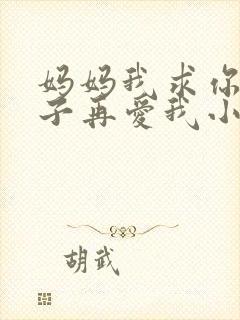 妈妈我求你
子再爱我小
胡武